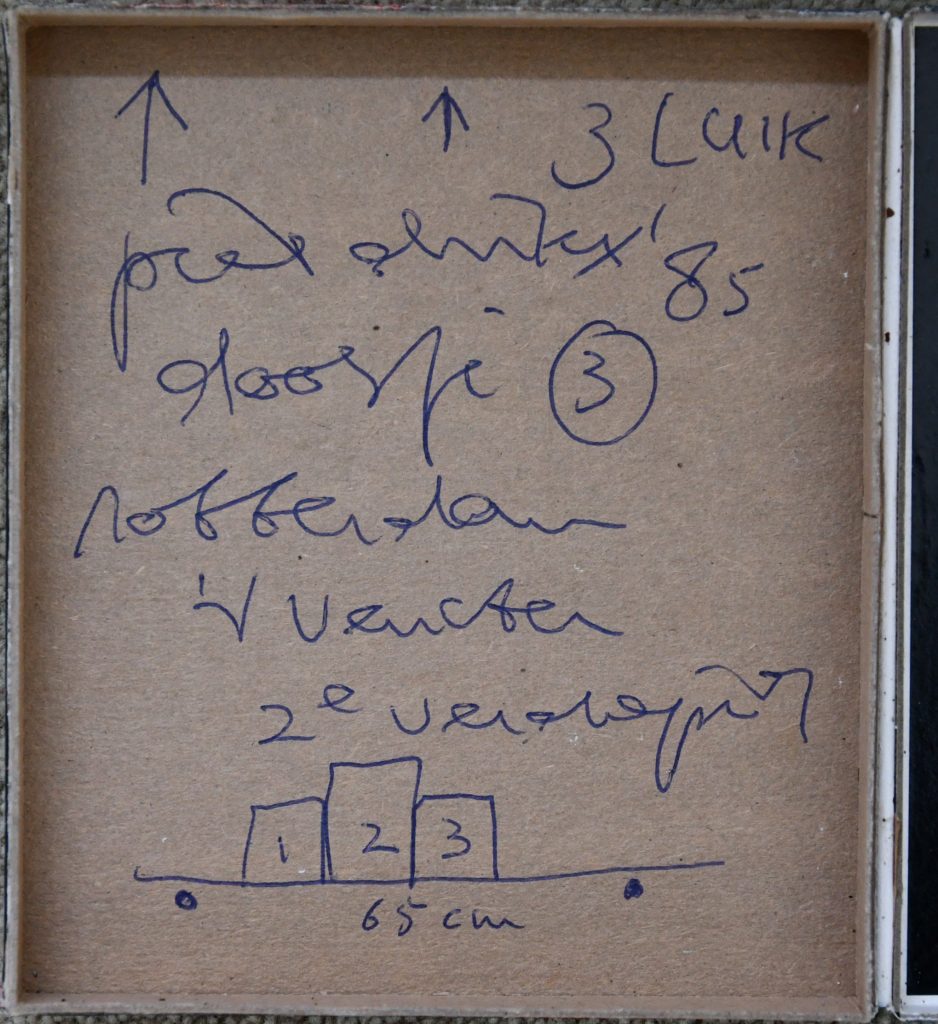 ↑ ↑ 3 LUIK
piet dirkx '85
doosje 3
rotterdam
't venster
2e verdieping
1 2 3
65 cm